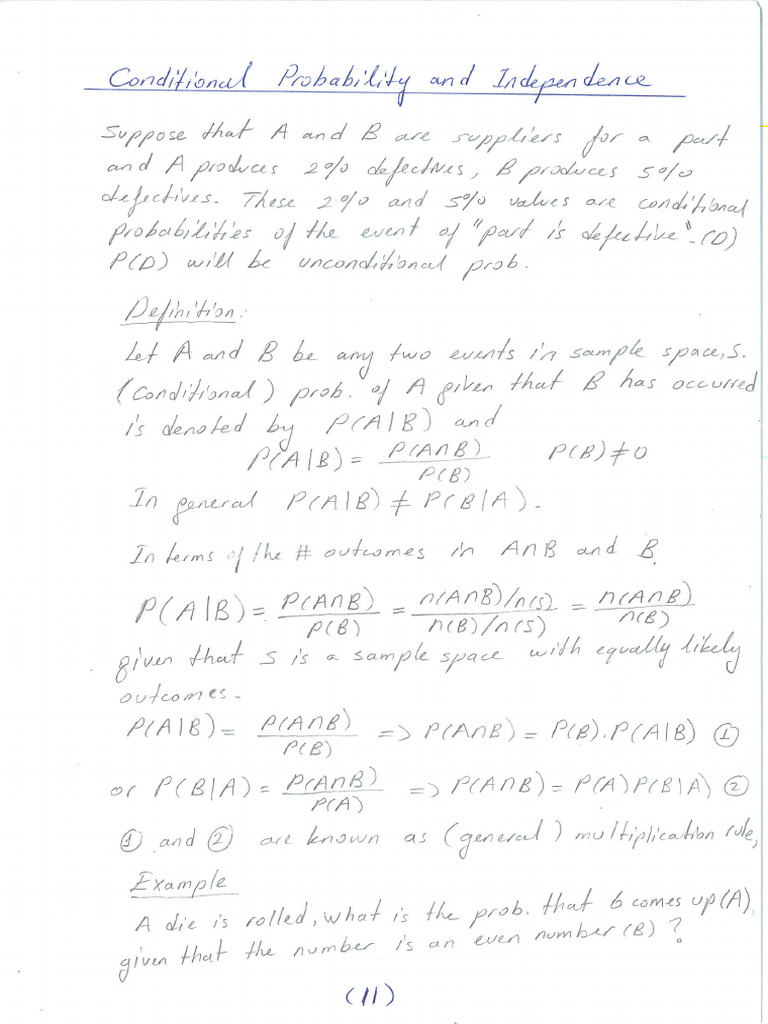 Conditional Probability and Independence
Suppose that A and B are suppliers for a part
and A produces 2% defectives, B produces 5%
defectives. These 2% and 5% values are conditional
probabilities of the event of "part is defective".(D)
P(D) will be unconditional prob.
Definition:
Let A and B be any two events in sample space, S.
(conditional) prob. of A given that B has occurred
is denoted by P(A|B) and
P(A|B) = P(A∩B)/P(B) P(B)≠0
In general P(A|B) ≠ P(B|A).
In terms of the # outcomes in A∩B and B.
P(A|B) = P(A∩B)/P(B) = (n(A∩B)/n(S))/(n(B)/n(S)) = n(A∩B)/n(B)
given that S is a sample space with equally likely
outcomes.
P(A|B) = P(A∩B)/P(B) => P(A∩B) = P(B).P(A|B) ①
or P(B|A) = P(A∩B)/P(A) => P(A∩B) = P(A)P(B|A) ②
① and ② are known as (general) multiplication rule,
Example
A die is rolled, what is the prob. that 6 comes up (A),
given that the number is an even number (B)?
(11)